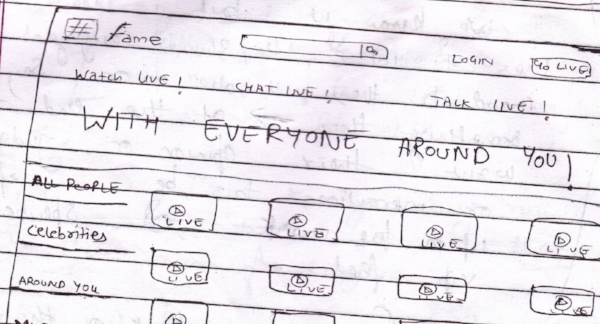 # fame LOGIN GO LIVE
Watch LIVE! CHAT LIVE!! TALK LIVE!
WITH EVERYONE AROUND YOU!
ALL PEOPLE
LIVE LIVE LIVE LIVE
Celebrities
LIVE LIVE LIVE LIVE
AROUND YOU